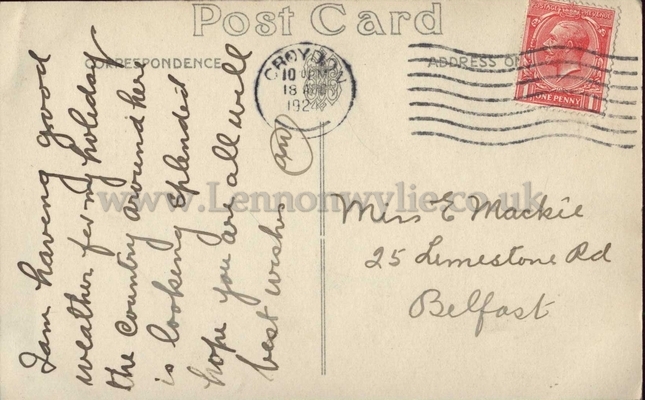 Post Card
CORRESPONDENCE
ADDRESS ON
CROYDON
10 PM
18 AUG
1924
POSTAGE REVENUE
ONE PENNY
I am having good
weather for my holiday
the country around here
is looking splended
hope you are all well
best wishes
Miss E Mackie
25 Limestone Rd
Belfast
www.Lennonwylie.co.uk